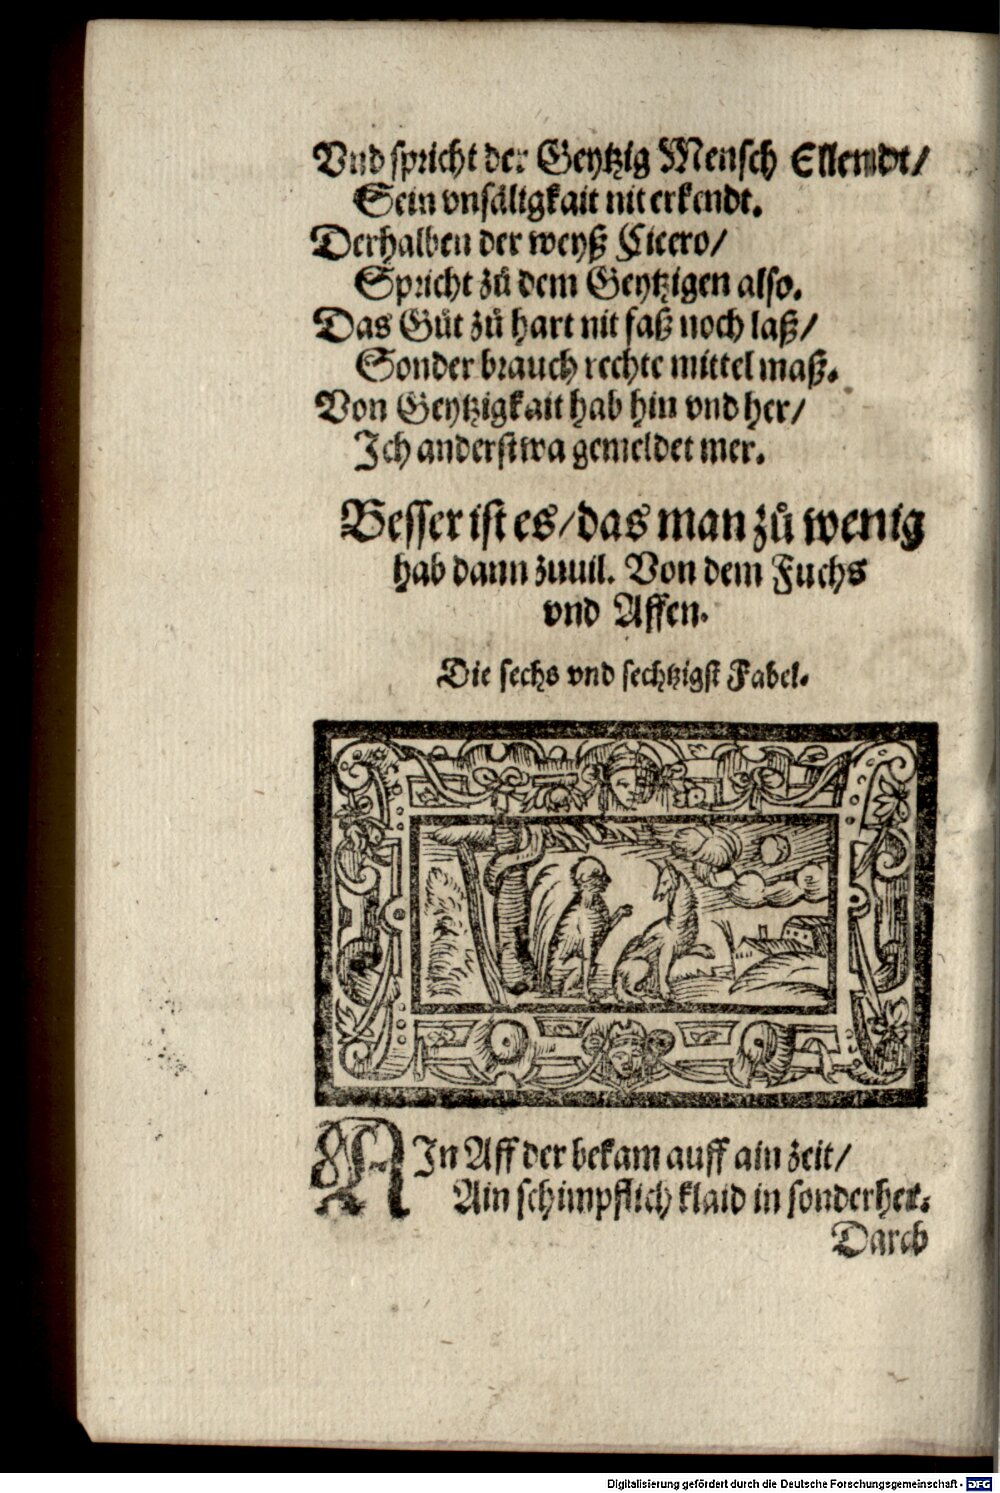 Vnd spricht der Geytzig Mensch Ellendt/
Sein vnsäligkait nit erkendt.
Derhalben der weyß Cicero/
Spricht zů dem Geytzigen also.
Das Gůt zů hart nit faß noch laß/
Sonder brauch rechte mittel maß.
Von Geytzigkait hab hin vnd her/
Ich anderstwa gemeldet mer.
Besser ist es/das man zů wenig
hab dann zuuil. Von dem Fuchs
vnd Affen.
Die sechs vnd sechtzigst Fabel.
AIn Aff der bekam auff ain zeit/
Ain schimpflich klaid in sonderheit.
Darab
Digitalisierung gefördert durch die Deutsche Forschungsgemeinschaft - DFG